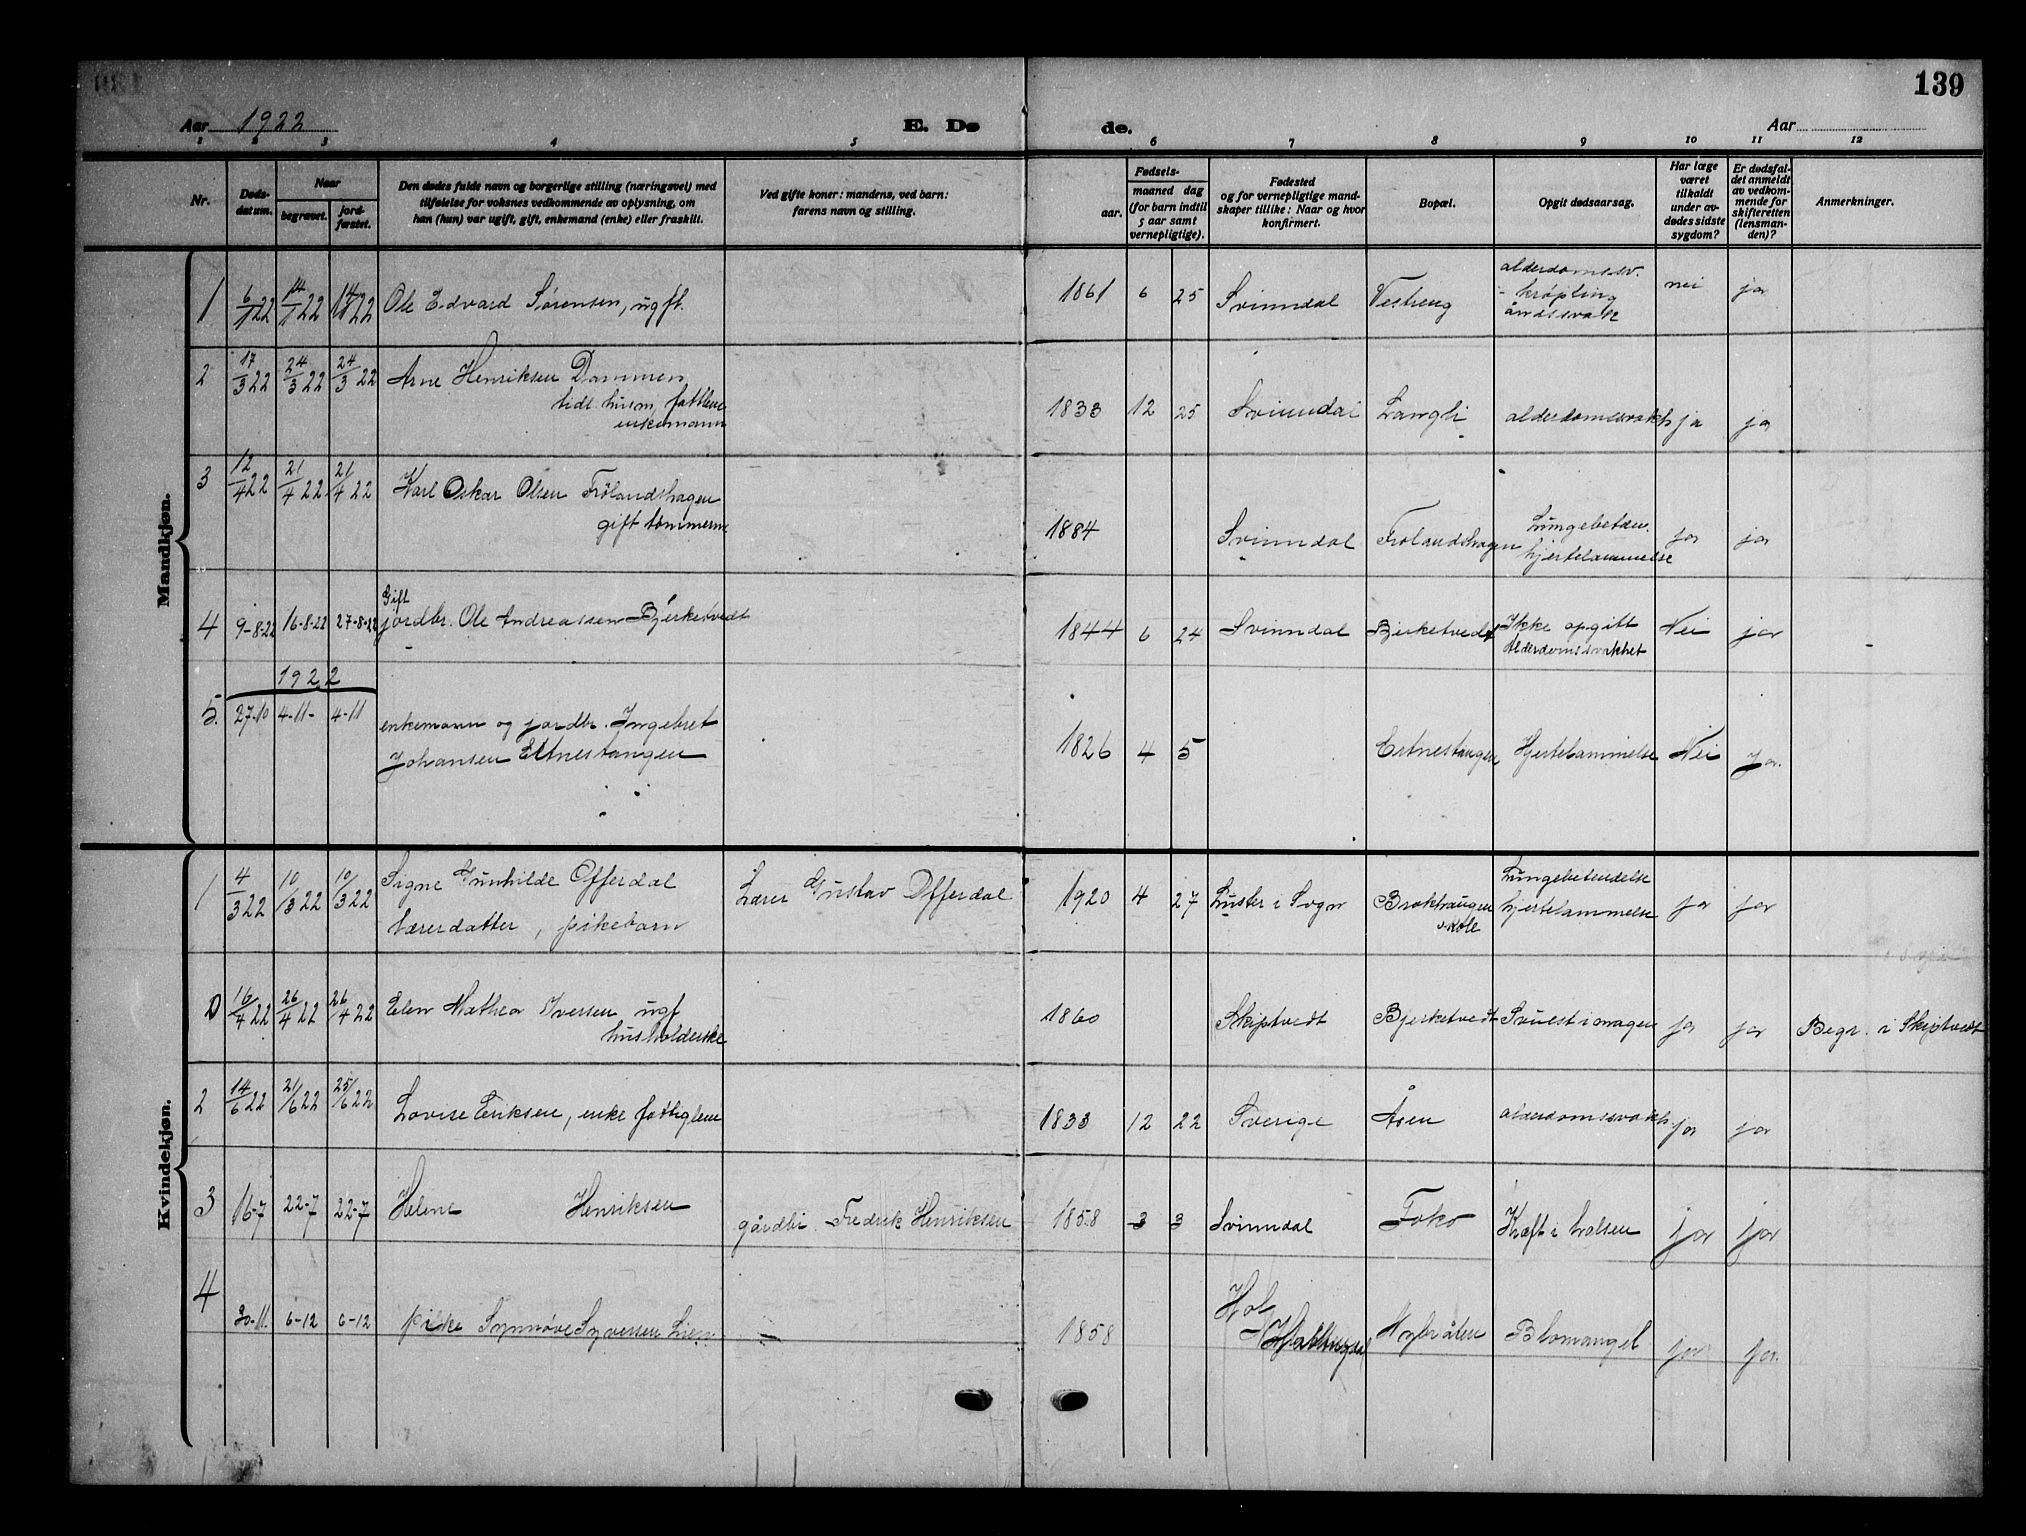 139
Aar 1922
E. Dø
de.
Aar
1 2 3 4 5 6 7 8 9 10 11 12
Nr.
Døds-
datum.
Naar
begravet.
jord-
fæstet.
Den dødes fulde navn og borgerlige stilling (næringsvei) med
tilføielse for voksnes vedkommende av oplysning, om
han (hun) var ugift, gift, enkemand (enke) eller fraskilt.
Ved gifte koner: mandens, ved barn:
farens navn og stilling.
Fødsels-
aar.
maaned dag
(for barn indtil
5 aar samt
vernepligtige).
Fødested
og for vernepligtige mand-
skaper tillike: Naar og hvor
konfirmert.
Bopæl.
Opgit dødsaarsag.
Har læge
været
tilkaldt
under av-
dødes sidste
sygdom?
Er dødsfal-
det anmeldt
av vedkom-
mende for
skifteretten
(lensman-
den)?
Anmerkninger.
Mandkjøn.
1 6/1 22 14/1 22 14/1 22 Ole Edvard Sørensen, ugft. 1861 6 25 Svinndal Vestreng alderdomssv.
- krøpling
åndssvak
nei ja
2 17/3 22 24/3 22 24/3 22 Arne Henriksen Dammen
tidl. husm, fattlem
enkemann
1833 12 25 Svinndal Langli alderdomssvakh ja ja
3 12/4 22 21/4 22 21/4 22 Karl Oskar Olsen Frølandshagen
gift tømmerm
1884 Svinndal Frølandshagen Lungebetæn.
hjertelammelse
ja ja
4 9-8-22 16-8-22 27-8-22 Gift
jordbr. Ole Andreassen Bjerketvedt
1844 6 24 Svinndal Bjerketvedt Ikke opgitt
Alderdomssvakhet
Nei ja
1922
5. 27-10 4-11- 4-11 enkemann og jordbr. Ingebret
Johansen Ertnestangen
1826 4 5 Ertnestangen Hjertelammelse Nei Ja.
Kvindekjøn.
1 4/3 22 10/3 22 10/3 22 Signe Gunhilde Offerdal
lærerdatter, pikebarn
Lærer Gustav Offerdal 1920 4 27 Luster i Sogn Brokhaugen
skole
Lungebetendelse
hjertelammelse
ja ja
D 16/4 22 26/4 22 26/4 22 Elen Mathea Iversen ugf
husholderske
1860 Skiptvedt Bjerketvedt Svulst i magen ja ja Begr. i Skiptvedt
2 14/6 22 21/6 22 25/6 22 Lovise Eriksen, enke fattiglem 1833 12 22 Sverige Åsen alderdomssvakh ja ja
3 16-7 22-7 22-7 Helene Henriksen gårdbr. Fredrik Henriksen 1858 3 3 Svinndal Foko Kræft i halsen ja ja
4 30-11. 6-12 6-12 pike Synnøve Syversen Lien — 1858 Hol
Hallingdal
Nybråten Blomangel ja ja.